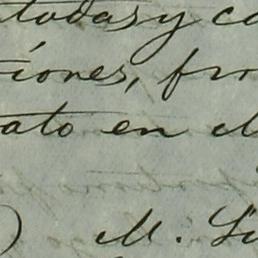 tudas y co
iones, fro
ato en el
) M. Li